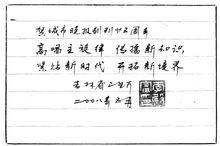 贺城市晚报创刊廿五周年
高唱主旋律 传播新知识
紧贴新时代 开拓新境界
吉林省
二〇〇八年三月